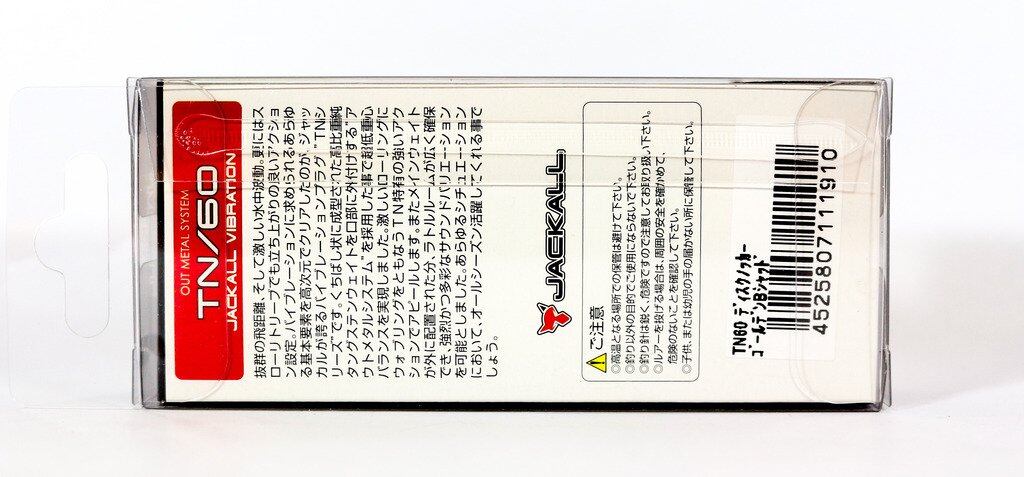 OUT METAL SYSTEM
TN/60
JACKALL VIBRATION
抜群の飛距離、そして激しい水中波動。更にはス
ローリトリーブでも立ち上がりの良いアクショ
ン設定。バイブレーションに求められる、あらゆ
る基本要素を高次元でクリアしたのが、ジャッ
カルが誇るバイブレーションプラグ、"TNシ
リーズ"です。くちばし状に成型された高比重純
タングステンウェイトを口部に外付けする"ア
ウトメタルシステム"を採用した事で超低重心
バランスを実現しました。激しいローリングに
ウォブリングをともなうTN特有の強いアク
ションでアピールします。またメインウェイト
が外に配置された分、ラトルルームが広く確保
でき、強烈かつ多彩なサウンドバリエーション
を可能としました。あらゆるシチュエーション
において、オールシーズン活躍してくれる事で
しょう。
JACKALL
ご注意
◎高温となる場所での保管は避けて下さい。
◎釣り以外の目的でご使用にならないで下さい。
◎釣り針は鋭く、危険ですので注意してお取り扱い下さい。
◎ルアーを投げる場合は、周囲の安全を確かめて、
危険のないことを確認して下さい。
◎子供、または幼児の手の届かない所に保管して下さい。
TN60 ディスクノッカー
ゴールデンBシャッド
4525807111910